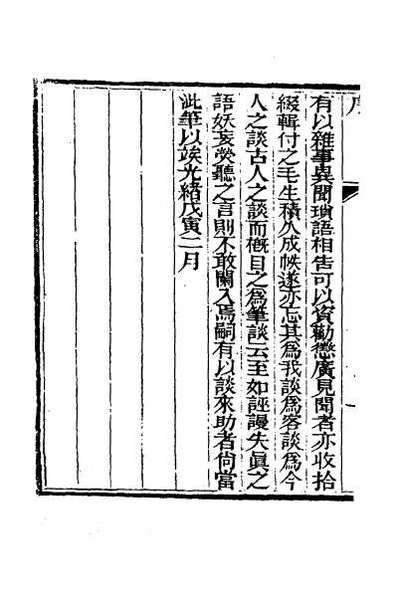 序
有以雜事異聞瑣語相告可以資勸懲廣見聞者亦收拾
綴輯付之毛生積久成帙遂亦忘其為我談為客談為今
人之談古人之談而概目之為筆談云至如誣謾失眞之
語妖妄熒聽之言則不敢闌入焉嗣有以談來助者尙當
泚筆以竢光緒戊寅二月